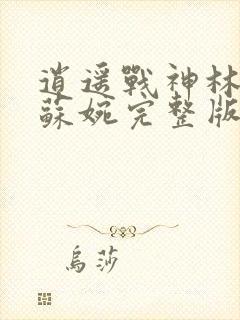 逍遥戰神林
蘇婉完整版
烏莎